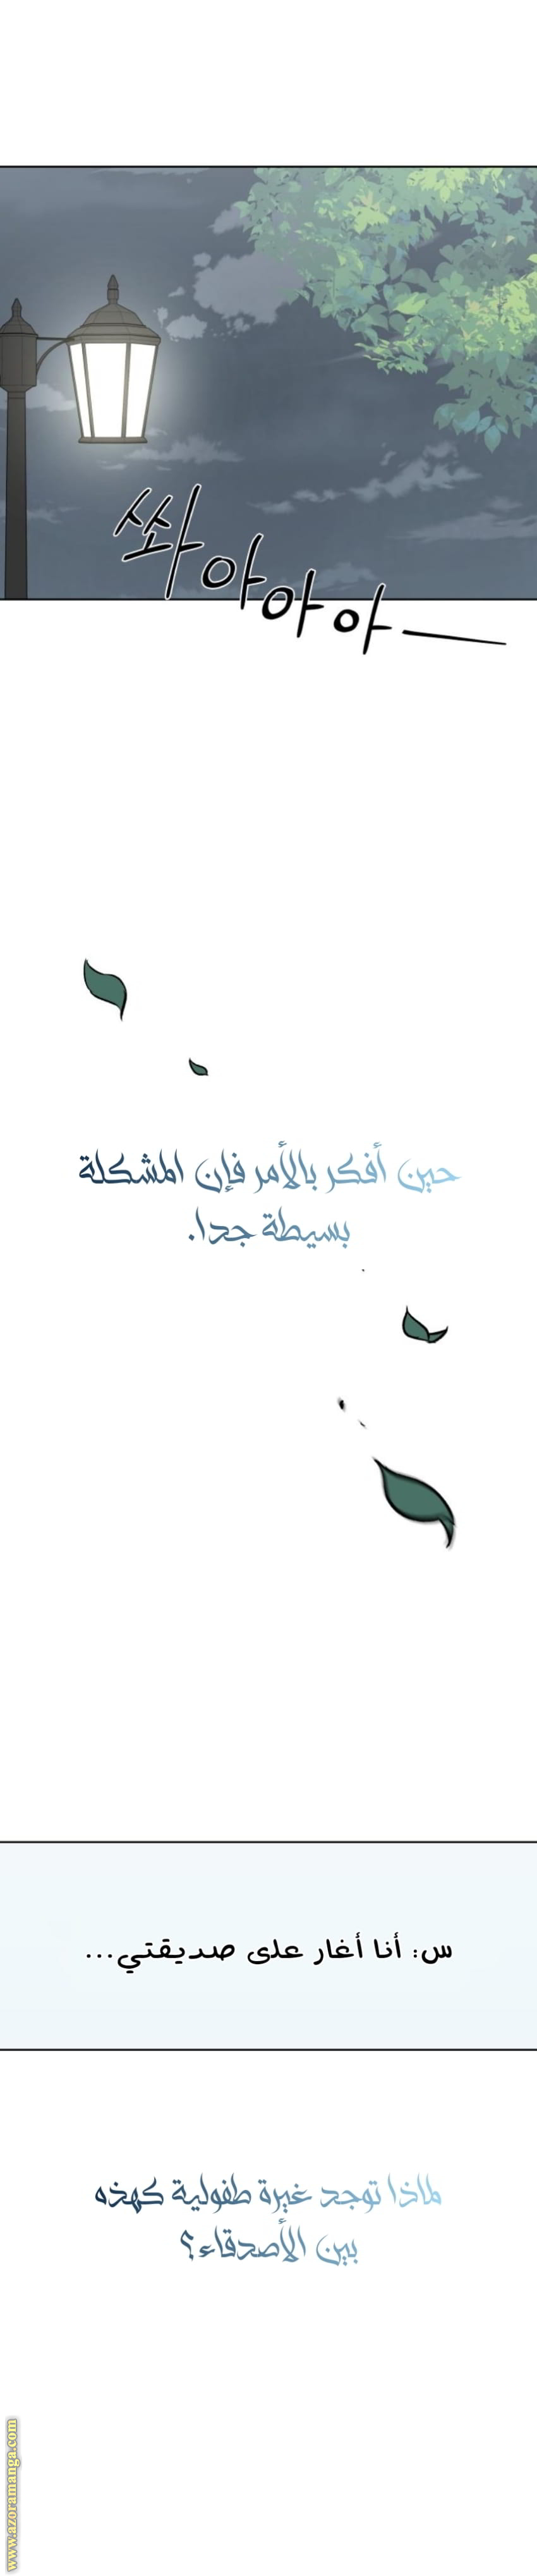 쏴아아아—
حين أفكر بالأمر فإن المشكلة
بسيطة جدا.
س: أنا أغار على صديقتي...
لماذا توجد غيرة طفولية كهذه
بين الأصدقاء؟
www.azoramanga.com